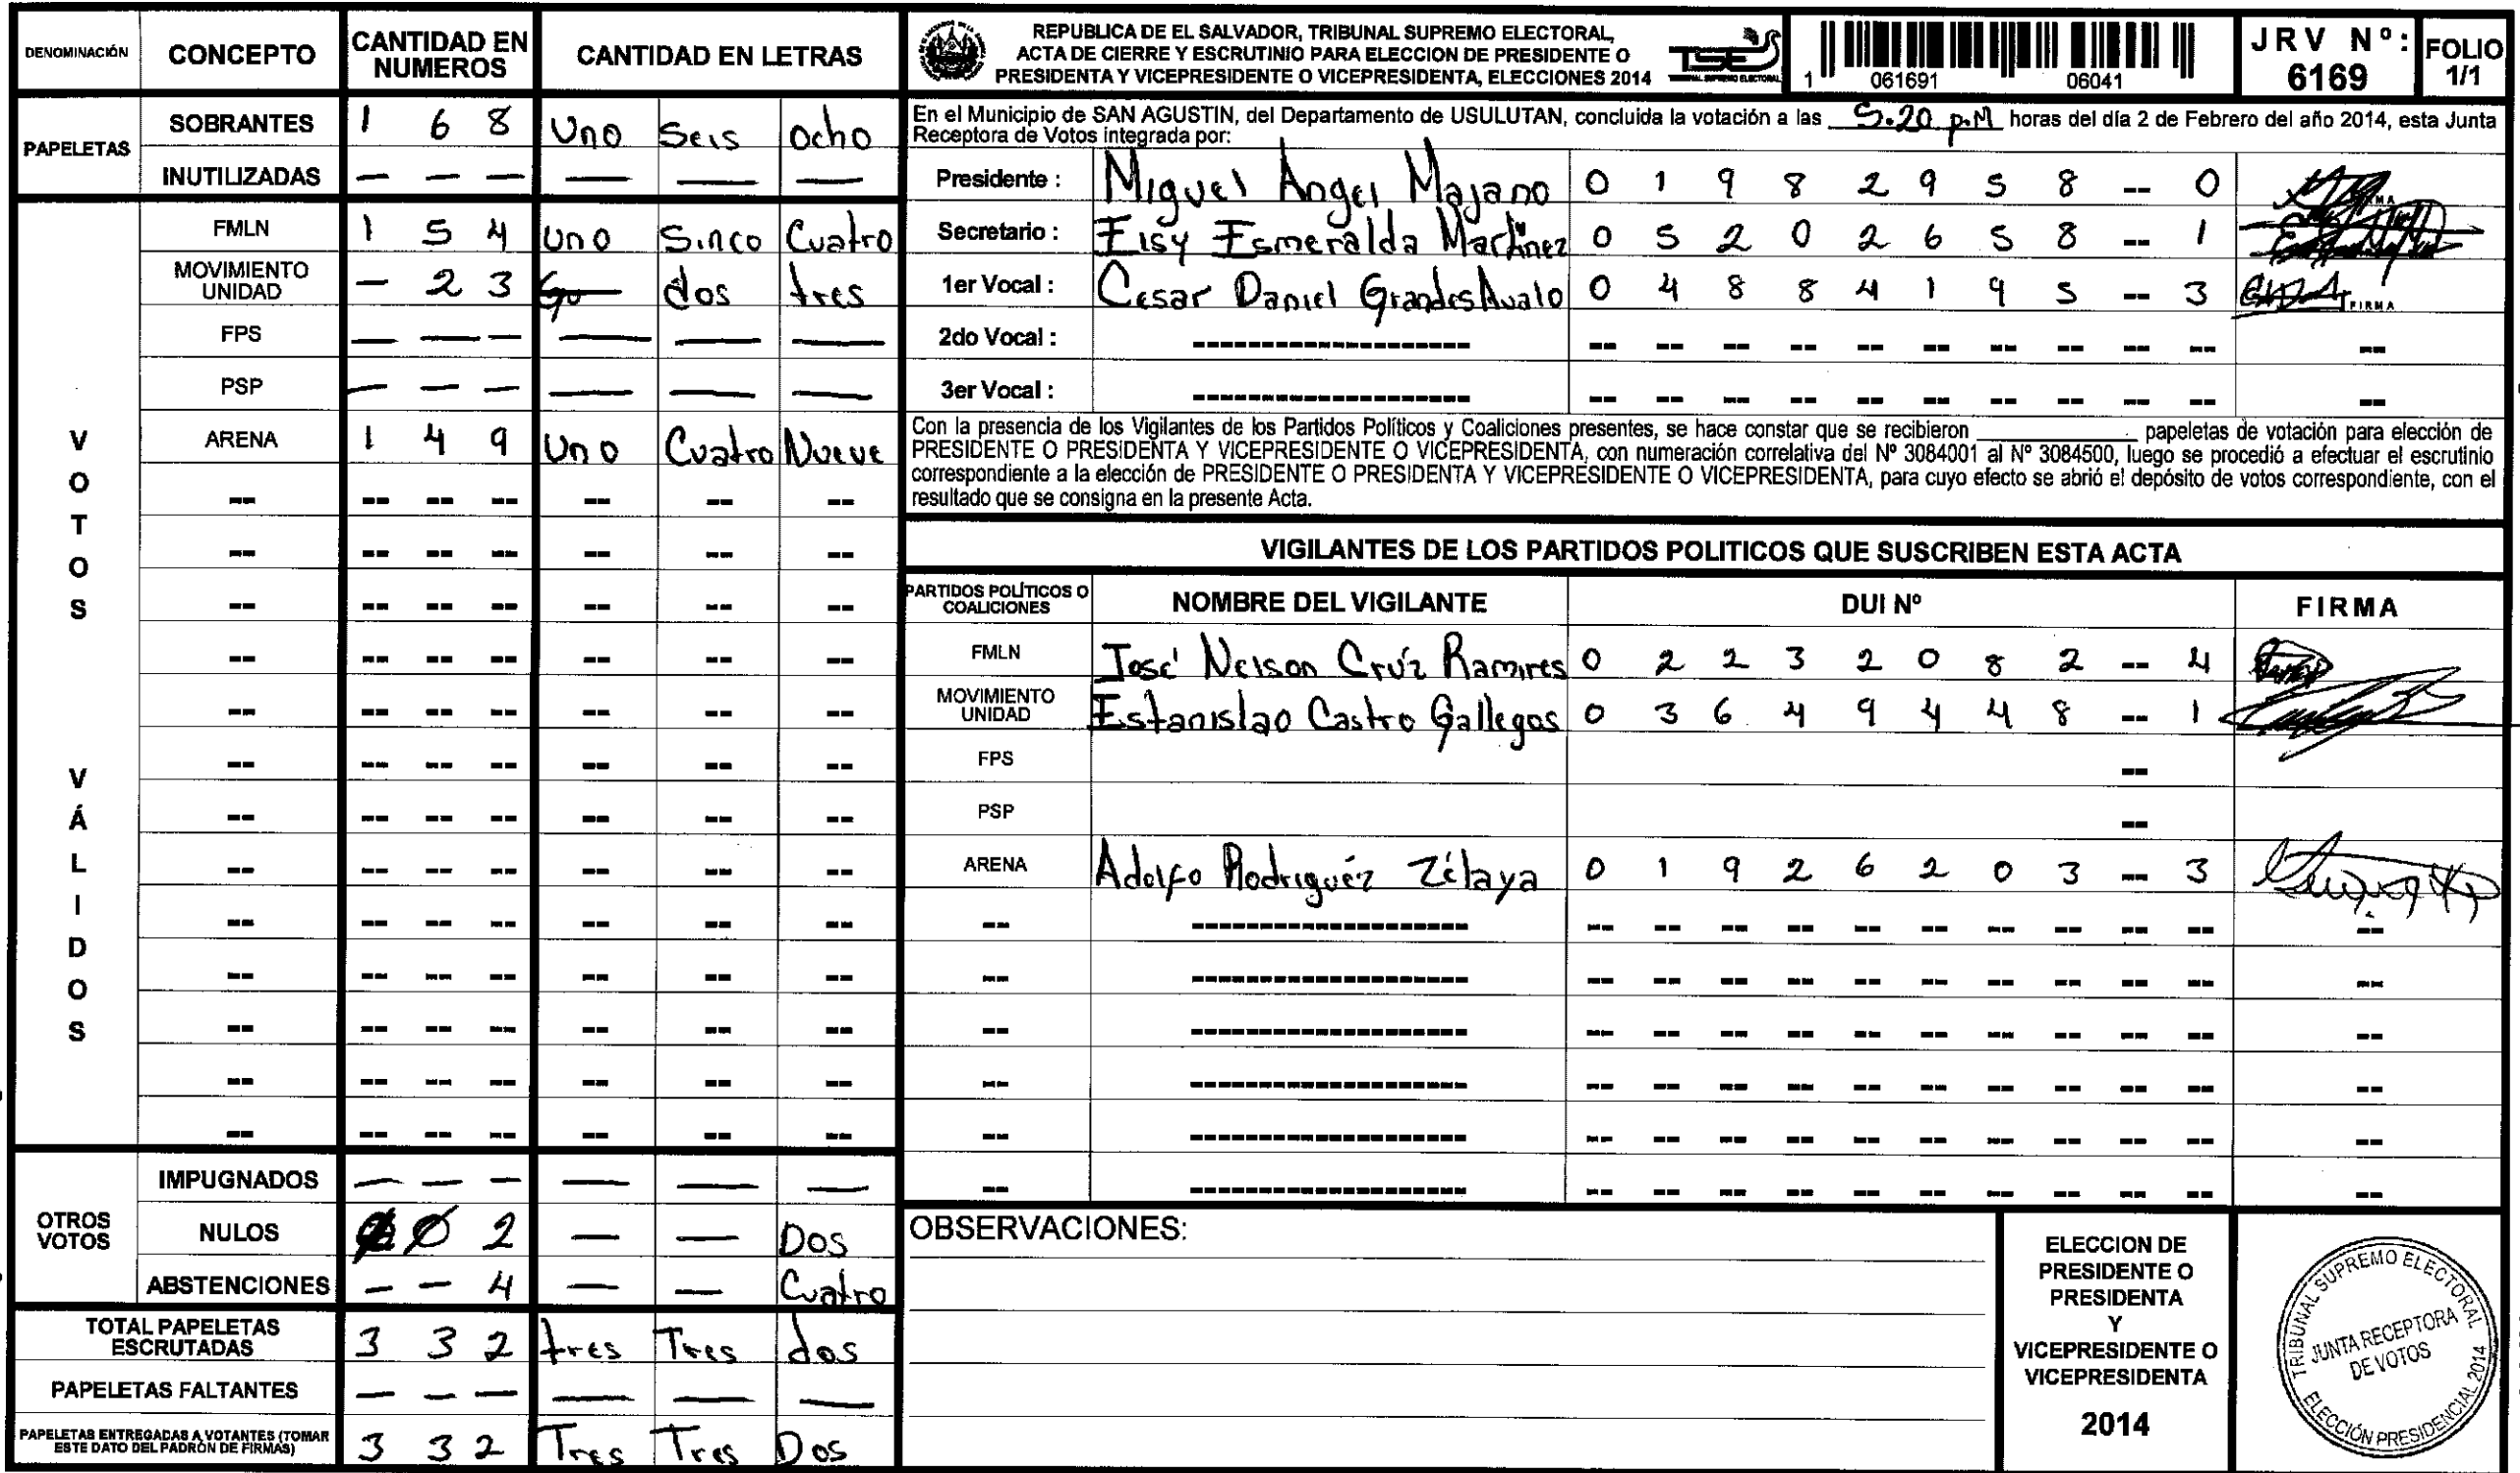 DENOMINACIÓN CONCEPTO CANTIDAD EN NUMEROS CANTIDAD EN LETRAS
PAPELETAS
SOBRANTES 1 6 8 Uno Seis Ocho
INUTILIZADAS — — — — — —
VOTOS VÁLIDOS
FMLN 1 5 4 Uno Sinco Cuatro
MOVIMIENTO UNIDAD — 2 3 dos tres
FPS — — — — — —
PSP — — — — — —
ARENA 1 4 9 Uno Cuatro Nueve
-- -- -- -- -- -- --
-- -- -- -- -- -- --
-- -- -- -- -- -- --
-- -- -- -- -- -- --
-- -- -- -- -- -- --
-- -- -- -- -- -- --
-- -- -- -- -- -- --
-- -- -- -- -- -- --
-- -- -- -- -- -- --
-- -- -- -- -- -- --
-- -- -- -- -- -- --
-- -- -- -- -- -- --
-- -- -- -- -- -- --
OTROS VOTOS
IMPUGNADOS — — — — — —
NULOS 0 0 2 — — Dos
ABSTENCIONES — — 4 — — Cuatro
TOTAL PAPELETAS ESCRUTADAS 3 3 2 tres Tres dos
PAPELETAS FALTANTES — — — — — —
PAPELETAS ENTREGADAS A VOTANTES (TOMAR ESTE DATO DEL PADRÓN DE FIRMAS) 3 3 2 Tres Tres Dos
REPUBLICA DE EL SALVADOR, TRIBUNAL SUPREMO ELECTORAL,
ACTA DE CIERRE Y ESCRUTINIO PARA ELECCION DE PRESIDENTE O
PRESIDENTA Y VICEPRESIDENTE O VICEPRESIDENTA, ELECCIONES 2014
TSE
1 061691 06041
JRV Nº: 6169
FOLIO 1/1
En el Municipio de SAN AGUSTIN, del Departamento de USULUTAN, concluida la votación a las 5.20 p.M horas del día 2 de Febrero del año 2014, esta Junta
Receptora de Votos integrada por:
Presidente : Miguel Angel Majano 0 1 9 8 2 9 5 8 -- 0
Secretario : Eisy Esmeralda Martinez 0 5 2 0 2 6 5 8 -- 1
1er Vocal : Cesar Daniel Grandes Avalo 0 4 8 8 4 1 9 5 -- 3 FIRMA
2do Vocal : -------------------- -- -- -- -- -- -- -- -- -- -- --
3er Vocal : -------------------- -- -- -- -- -- -- -- -- -- -- --
Con la presencia de los Vigilantes de los Partidos Políticos y Coaliciones presentes, se hace constar que se recibieron ____________ papeletas de votación para elección de
PRESIDENTE O PRESIDENTA Y VICEPRESIDENTE O VICEPRESIDENTA, con numeración correlativa del Nº 3084001 al Nº 3084500, luego se procedió a efectuar el escrutinio
correspondiente a la elección de PRESIDENTE O PRESIDENTA Y VICEPRESIDENTE O VICEPRESIDENTA, para cuyo efecto se abrió el depósito de votos correspondiente, con el
resultado que se consigna en la presente Acta.
VIGILANTES DE LOS PARTIDOS POLITICOS QUE SUSCRIBEN ESTA ACTA
PARTIDOS POLÍTICOS O COALICIONES NOMBRE DEL VIGILANTE DUI Nº FIRMA
FMLN José Nelson Crúz Ramires 0 2 2 3 2 0 8 2 -- 4
MOVIMIENTO UNIDAD Estanislao Castro Gallegos 0 3 6 4 9 4 4 8 -- 1
FPS --
PSP --
ARENA Adolfo Rodriguéz Zélaya 0 1 9 2 6 2 0 3 -- 3
-- -------------------- -- -- -- -- -- -- -- -- -- -- --
-- -------------------- -- -- -- -- -- -- -- -- -- -- --
-- -------------------- -- -- -- -- -- -- -- -- -- -- --
-- -------------------- -- -- -- -- -- -- -- -- -- -- --
-- -------------------- -- -- -- -- -- -- -- -- -- -- --
-- -------------------- -- -- -- -- -- -- -- -- -- -- --
OBSERVACIONES:
ELECCION DE
PRESIDENTE O
PRESIDENTA
Y
VICEPRESIDENTE O
VICEPRESIDENTA
2014
TRIBUNAL SUPREMO ELECTORAL
JUNTA RECEPTORA
DE VOTOS
ELECCIÓN PRESIDENCIAL 2014